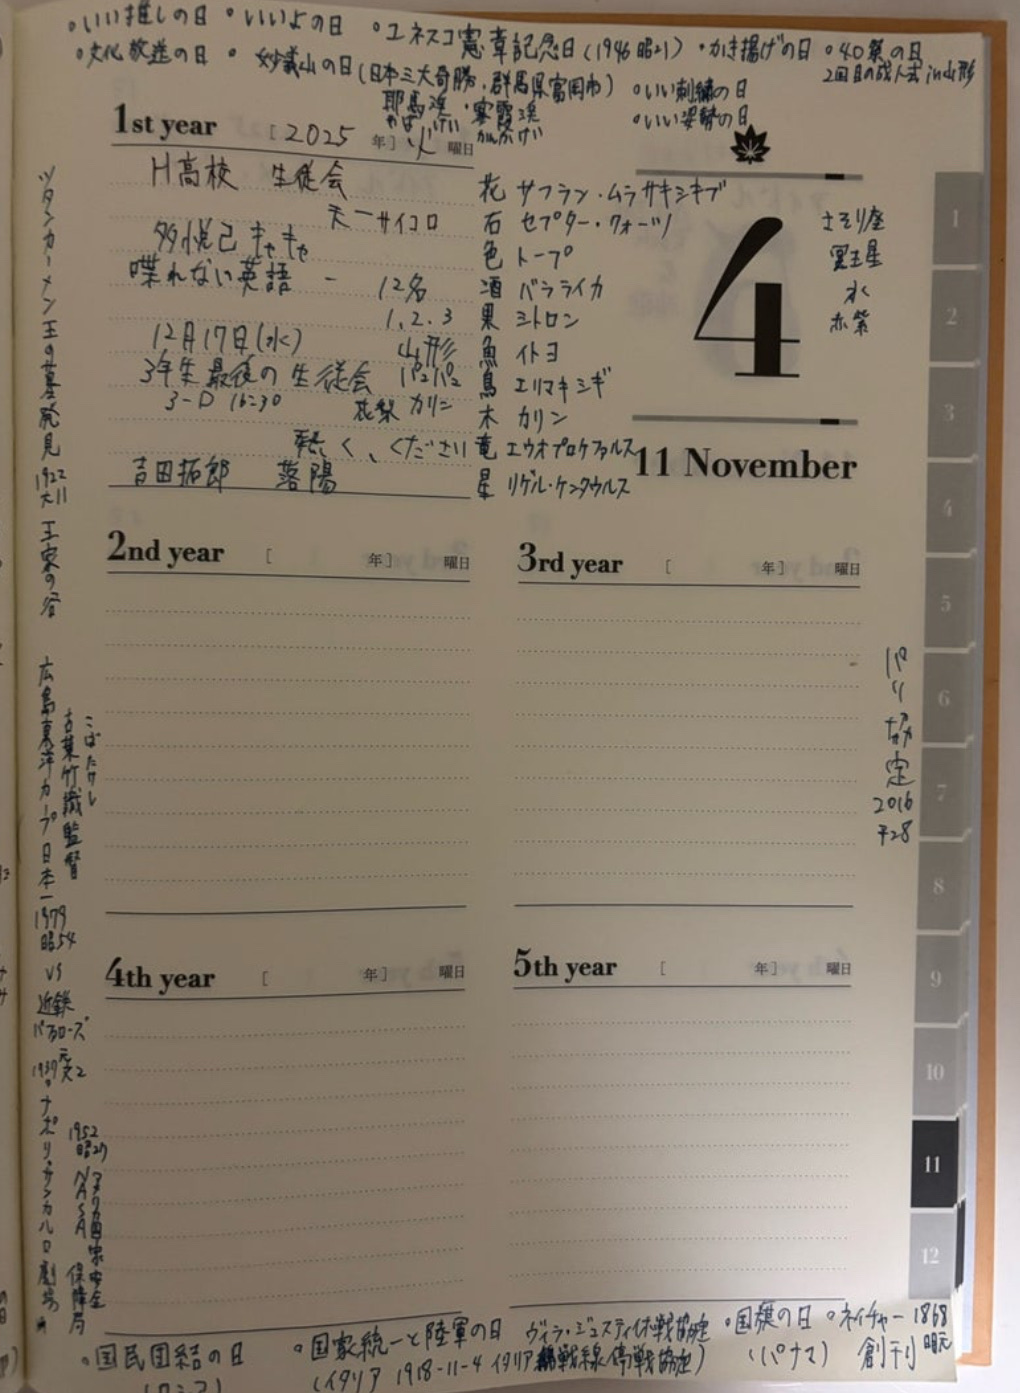 ・いい推しの日 ・いいよの日 ・ユネスコ憲章記念日(1946 昭21) ・かき揚げの日 ・40祭の日
2回目の成人式 in 山形
・文化放送の日 ・妙義山の日(日本三大奇勝・群馬県富岡市)
耶馬渓・寒霞渓
やばけい かんかけい
・いい刺繍の日
・いい姿勢の日
1st year [2025 年] 火 曜日
H高校 生徒会
天一サイコロ
多悦己 キャキャ
喋れない英語 - 12名
1、2、3
12月17日(水) 山形
3年生最後の生徒会 パュパュ
3-D 16:30 花梨 カリン
熱く、ください
吉田拓郎 落陽
花 サフラン・ムラサキシキブ
石 セプター・クォーツ
色 トープ
酒 バラライカ
果 シトロン
魚 イトヨ
鳥 エリマキシギ
木 カリン
竜 エウオプロケファルス
星 リゲル・ケンタウルス
4
11 November
さそり座
冥王星
水
赤紫
ツタンカーメン王の墓発見 1922 大11 王家の谷
広島東洋カープ日本一 1979 昭54 vs 近鉄バファローズ
こばたけし
古葉竹識監督
1737 元文2 ・ナポリ・サンカルロ劇場
1952 昭27 NSA アメリカ国家安全保障局
2nd year [ 年] 曜日
3rd year [ 年] 曜日
パリ協定 2016 平28
4th year [ 年] 曜日
5th year [ 年] 曜日
・国民団結の日
(ロシア)
・国家統一と陸軍の日 ヴィラ・ジュスティ休戦協定
(イタリア 1918-11-4 イタリア戦線停戦協定)
・国旗の日
(パナマ)
・ネイチャー 1868
創刊 明元
1
2
3
4
5
6
7
8
9
10
11
12